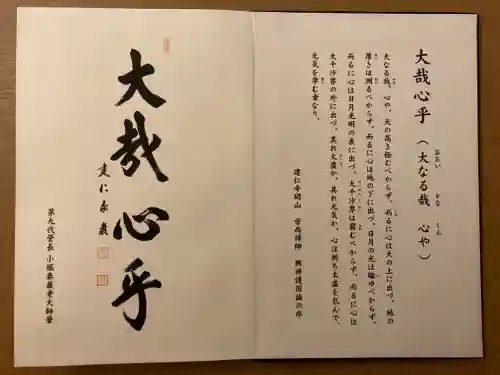 大哉心乎(大なる哉 心や)
大なる哉、心や、天の高き極むべからず、而るに心は天の上に出づ、地の
厚きは測るべからず、而るに心は地の下に出づ、日月の光は踰ゆべからず、
而るに心は日月光明の表に出づ、大千沙界は窮むべからず、而るに心は
大千沙界の外に出づ、其れ太虚か、其れ元気か、心は則ち太虚を包んで、
元気を孕む者なり、
建仁寺開山 栄西禅師 興禅護国論の序
大哉心乎
建仁泰巌
第九代管長 小堀泰巌老大師筆